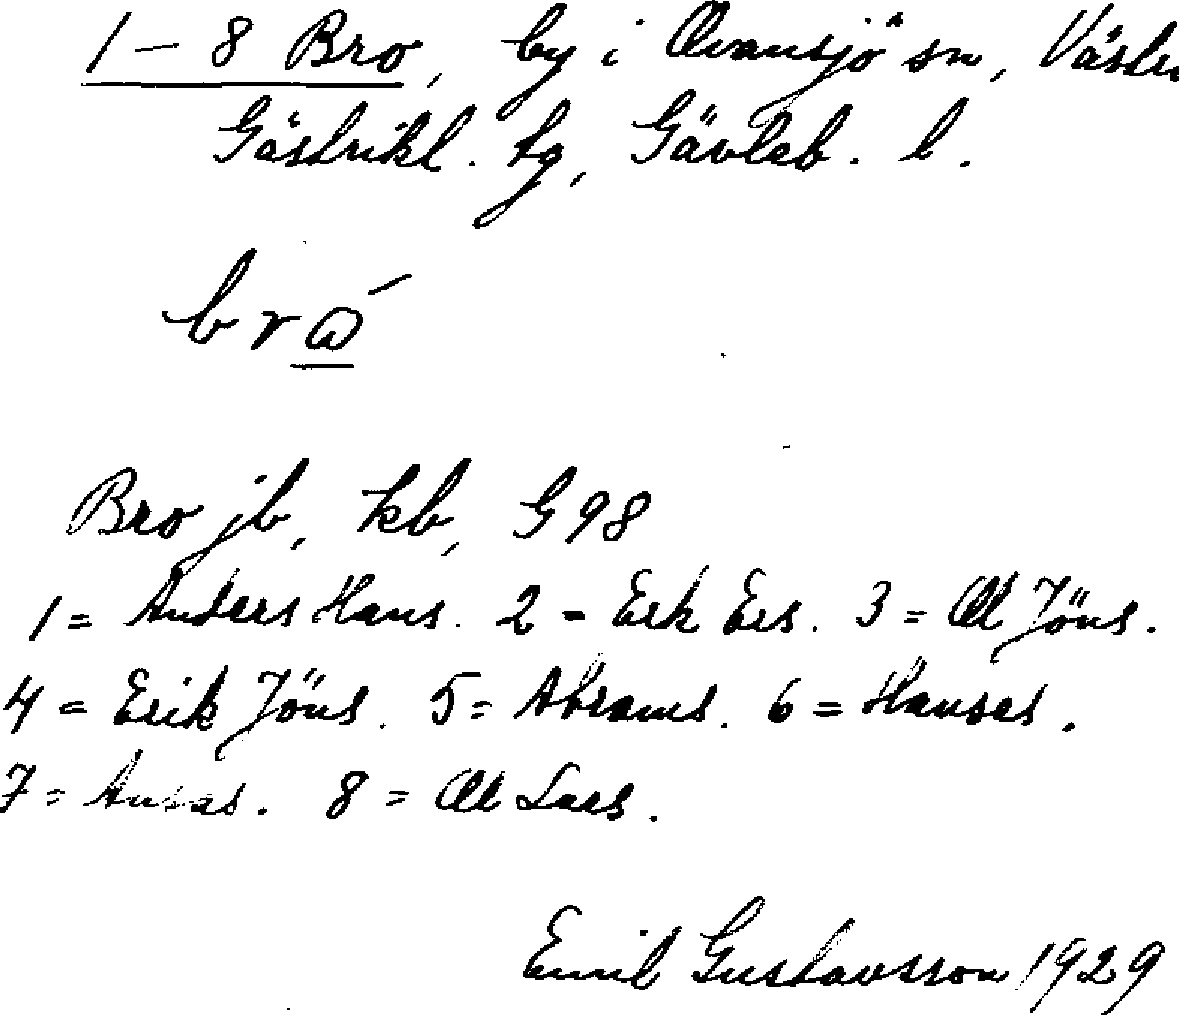 1 – 8 Bro, by i Ovansjö sn, Västra
Gästrikl. tg, Gävleb. l.
brώ
Bro jb, kb, G 98
1 = Anders Hans. 2 = Erk Ers. 3 = Ol Jöns.
4 = Erik Jöns. 5 = Abrams. 6 = Hansas.
7 = Ansas. 8 = Ol Lars.
Emil Gustavsson 1929